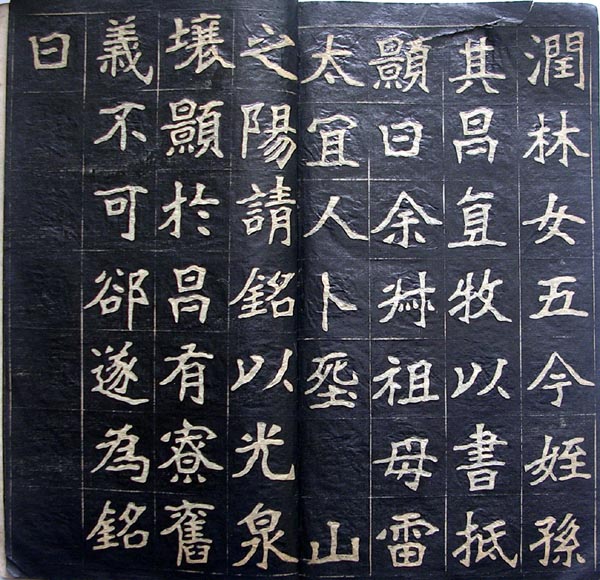 潤林女五今姪孫
其昌直牧以書抵
顥曰余叔祖母雷
太冝人卜 山
之陽請銘以光泉
壤顥於昌有寮舊
義不可卻遂為銘
曰